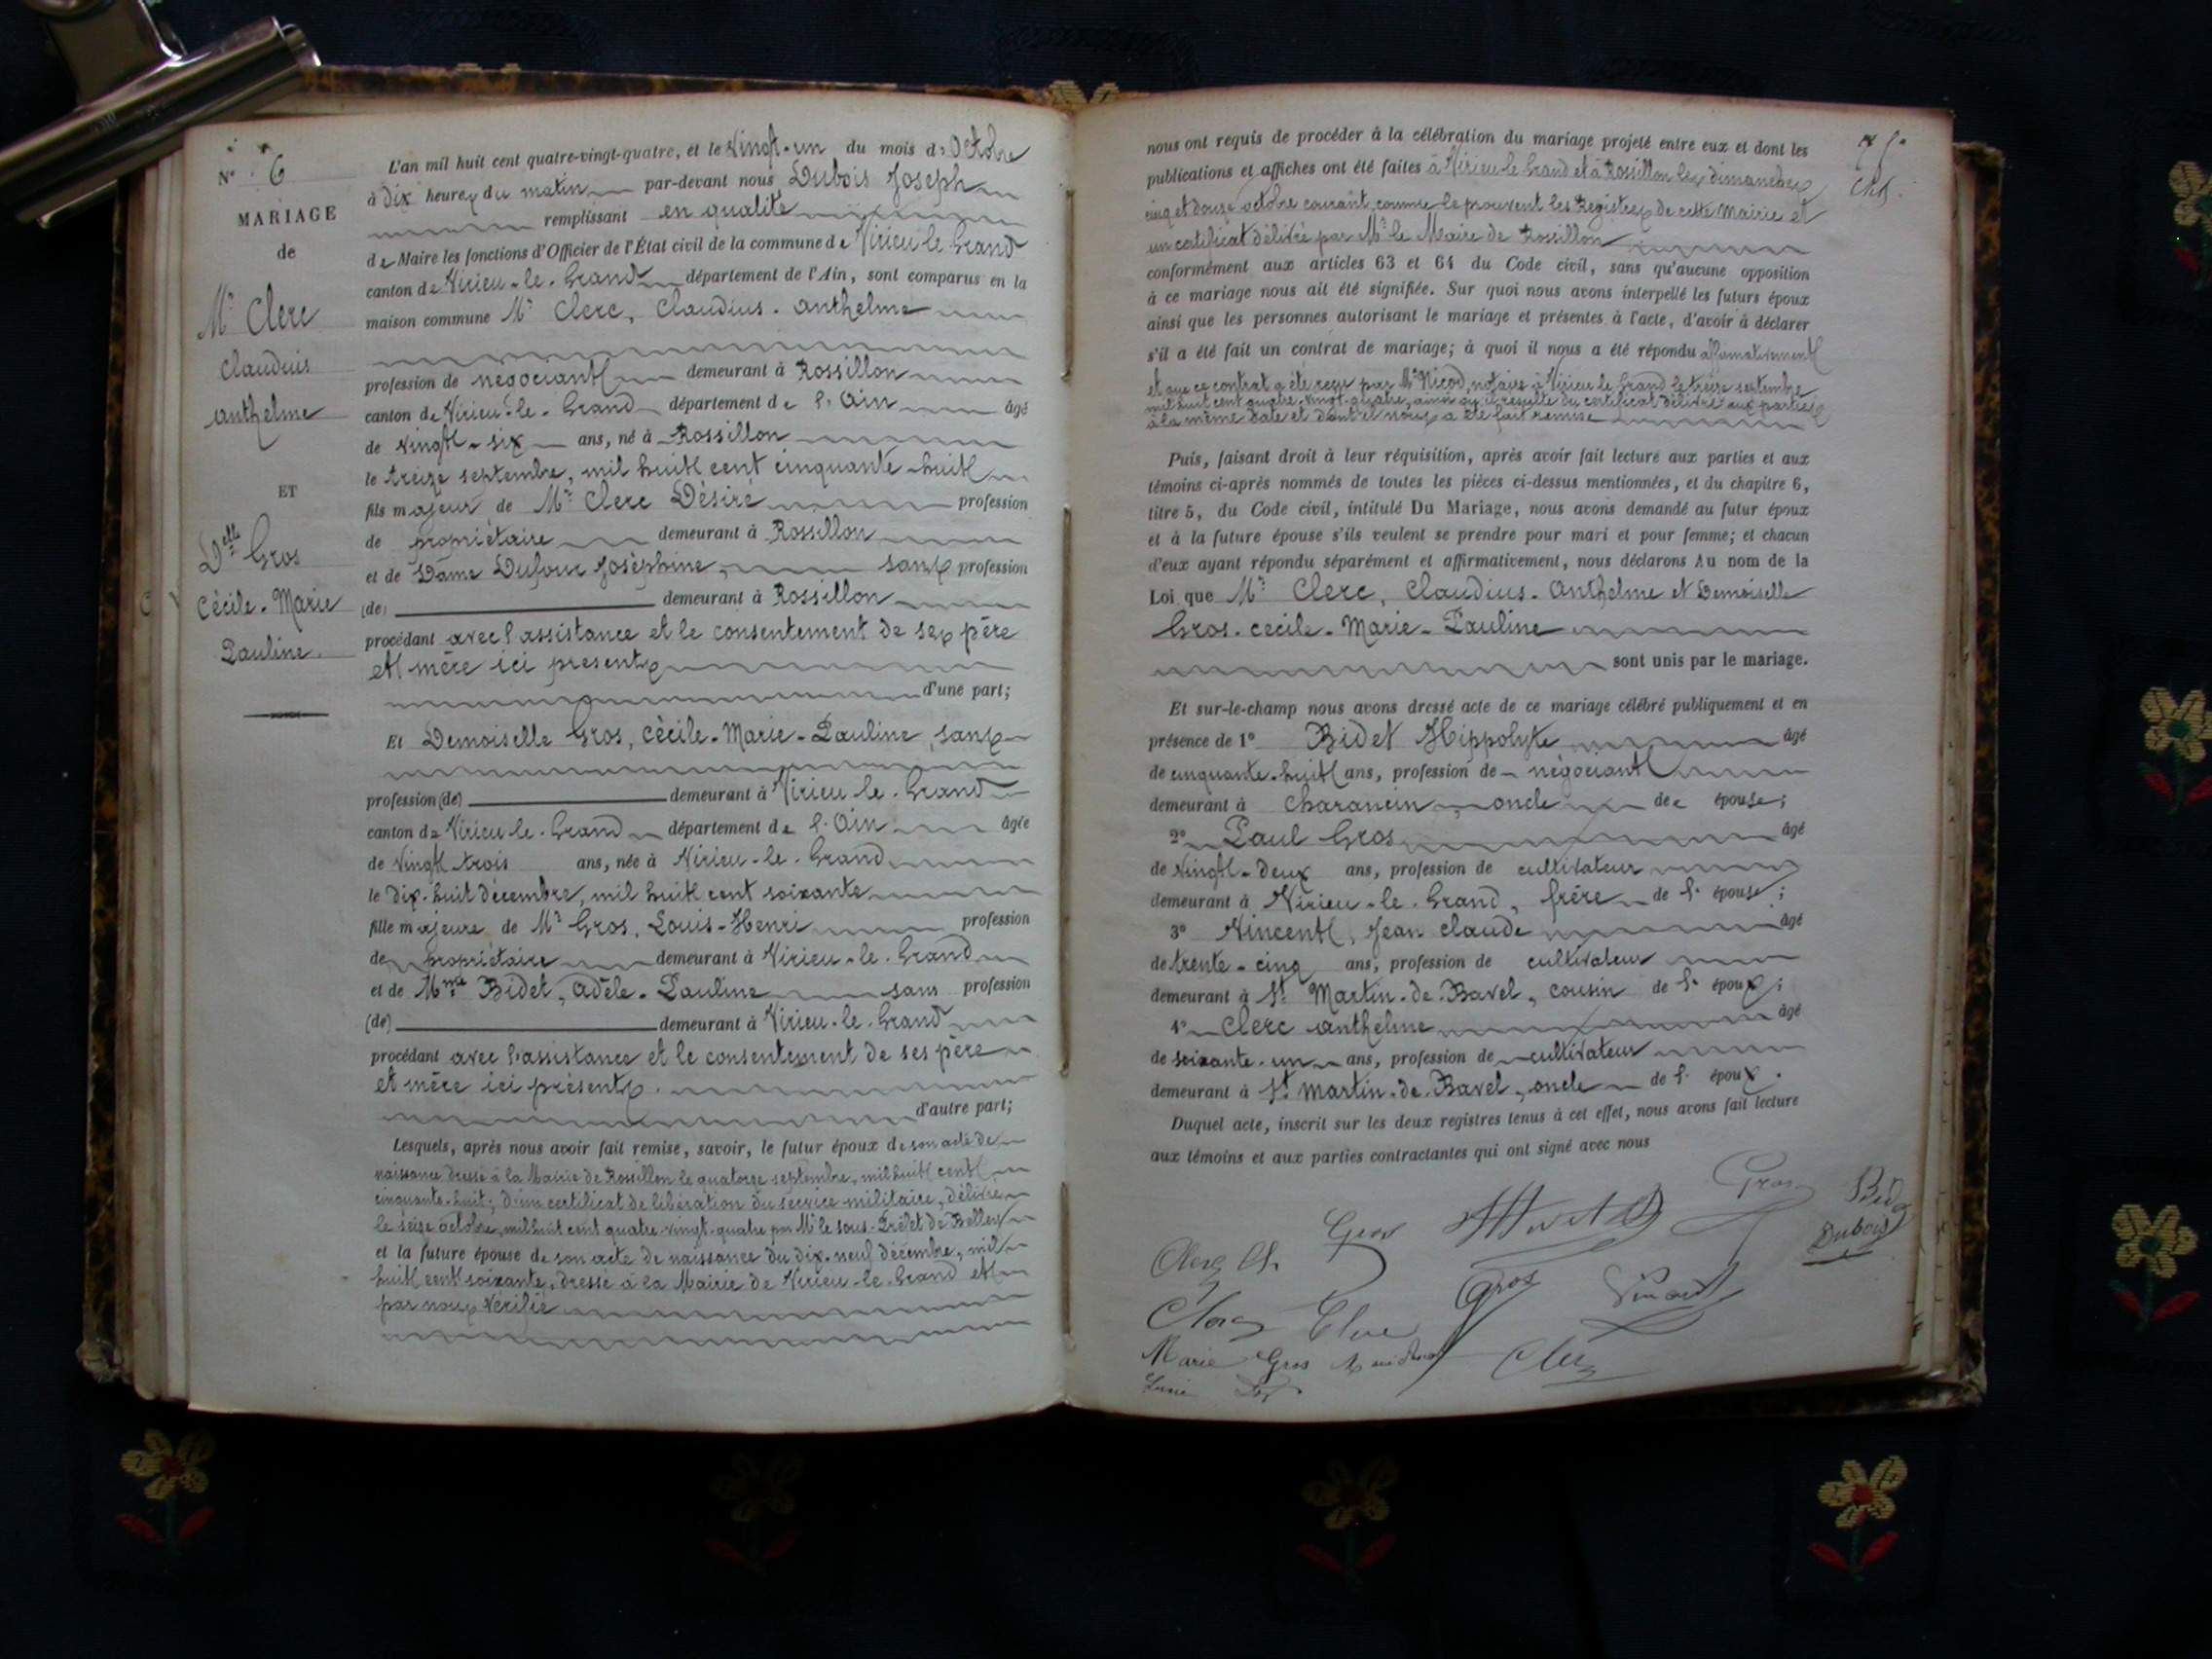 N° 6
MARIAGE
de
Mr Clerc
Claudius
Anthelme
ET
Delle Gros
Cécile-Marie
Pauline.
L'an mil huit cent quatre-vingt-quatre, et le Vingt-un du mois d'Octobre
à Dix heures du matin par-devant nous Dubois Joseph
remplissant en qualité
de Maire les fonctions d'Officier de l'État civil de la commune de Virieu le Grand
canton de Virieu-le-Grand département de l'Ain, sont comparus en la
maison commune Mr Clerc, Claudius-Anthelme
profession de négociant demeurant à Rossillon
canton de Virieu-le-Grand département de l'Ain âgé
de vingt-six ans, né à Rossillon
le treize septembre, mil huit cent cinquante-huit
fils majeur de Mr Clerc Désiré profession
de propriétaire demeurant à Rossillon
et de Dame Dufour Joséphine, sans profession
(de) demeurant à Rossillon
procédant avec l'assistance et le consentement de ses père
et mère ici présents
d'une part;
Et Demoiselle Gros, Cécile-Marie-Pauline, sans
profession (de) demeurant à Virieu-le-Grand
canton de Virieu-le-Grand département de l'Ain âgée
de vingt trois ans, née à Virieu-le-Grand
le dix-huit décembre, mil huit cent soixante
fille majeure de Mr Gros, Louis-Henri profession
de propriétaire demeurant à Virieu-le-Grand
et de Mme Bidet, Adèle-Pauline sans profession
(de) demeurant à Virieu-le-Grand
procédant avec l'assistance et le consentement de ses père
et mère ici présents.
d'autre part;
Lesquels, après nous avoir fait remise, savoir, le futur époux de son acte de
naissance dressé à la Mairie de Rossillon le quatorze septembre, mil huit cent
cinquante-huit; d'un certificat de libération du service militaire, délivré
le seize octobre, mil huit cent quatre-vingt-quatre par Mr le sous-Préfet de Belley
et la future épouse de son acte de naissance du dix-neuf décembre, mil
huit cent soixante, dressé à la Mairie de Virieu-le-Grand et
par nous vérifié
nous ont requis de procéder à la célébration du mariage projeté entre eux et dont les
publications et affiches ont été faites à Virieu le Grand et à Rossillon les dimanches
cinq et douze octobre courant, comme le prouvent les Registres de cette Mairie et
un certificat délivré par Mr le Maire de Rossillon
conformément aux articles 63 et 64 du Code civil, sans qu'aucune opposition
à ce mariage nous ait été signifiée. Sur quoi nous avons interpellé les futurs époux
ainsi que les personnes autorisant le mariage et présentes à l'acte, d'avoir à déclarer
s'il a été fait un contrat de mariage; à quoi il nous a été répondu affirmativement
et que ce contrat a été reçu par Me Nicod, notaire à Virieu le Grand le treize septembre
mil huit cent quatre-vingt-quatre, ainsi qu'il résulte du certificat délivré aux parties
à la même date et dont il nous a été fait remise
Puis, faisant droit à leur réquisition, après avoir fait lecture aux parties et aux
témoins ci-après nommés de toutes les pièces ci-dessus mentionnées, et du chapitre 6,
titre 5, du Code civil, intitulé Du Mariage, nous avons demandé au futur époux
et à la future épouse s'ils veulent se prendre pour mari et pour femme; et chacun
d'eux ayant répondu séparément et affirmativement, nous déclarons Au nom de la
Loi que Mr Clerc, Claudius-Anthelme et Demoiselle
Gros-Cécile-Marie-Pauline
sont unis par le mariage.
Et sur-le-champ nous avons dressé acte de ce mariage célébré publiquement et en
présence de 1° Bidet Hippolyte âgé
de cinquante-huit ans, profession de négociant
demeurant à Charancin, oncle de épouse;
2° Paul Gros âgé
de vingt-deux ans, profession de cultivateur
demeurant à Virieu-le-Grand, frère de l'épouse;
3° Vincent, Jean Claude âgé
de trente-cinq ans, profession de cultivateur
demeurant à St Martin-de-Bavel, cousin de l'époux;
4° Clerc Anthelme âgé
de soixante-un ans, profession de cultivateur
demeurant à St Martin-de-Bavel, oncle de l'époux.
Duquel acte, inscrit sur les deux registres tenus à cet effet, nous avons fait lecture
aux témoins et aux parties contractantes qui ont signé avec nous
Gros Bidet
Clerc Gros Dubois
Clerc Gros Vincent
Marie Gros Clerc